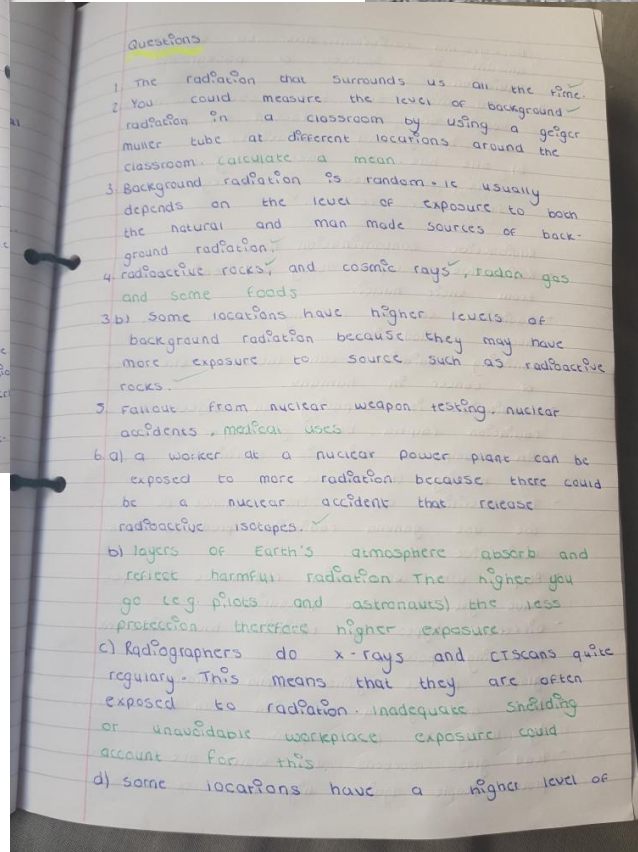 Questions
1. The radiation that surrounds us all the time.
2. You could measure the level of background
radiation in a classroom by using a geiger
muller tube at different locations around the
classroom. calculate a mean
3. Background radiation is random. it usually
depends on the level of exposure to both
the natural and man made sources of back-
ground radiation.
4. radioactive rocks, and cosmic rays, radon gas
and some foods
3.b) some locations have higher levels of
background radiation because they may have
more exposure to source such as radioactive
rocks.
5. Fallout from nuclear weapon testing, nuclear
accidents, medical uses
6.a) a worker at a nuclear power plant can be
exposed to more radiation because there could
be a nuclear accident that release
radioactive isotopes.
b) layers of Earth's atmosphere absorb and
reflect harmful radiation. The higher you
go (e.g. pilots and astronauts) the less
protection therefore higher exposure
c) Radiographers do x-rays and CT scans quite
regulary. This means that they are often
exposed to radiation. inadequate sheilding
or unavoidable workplace exposure could
account for this
d) some locations have a higher level of